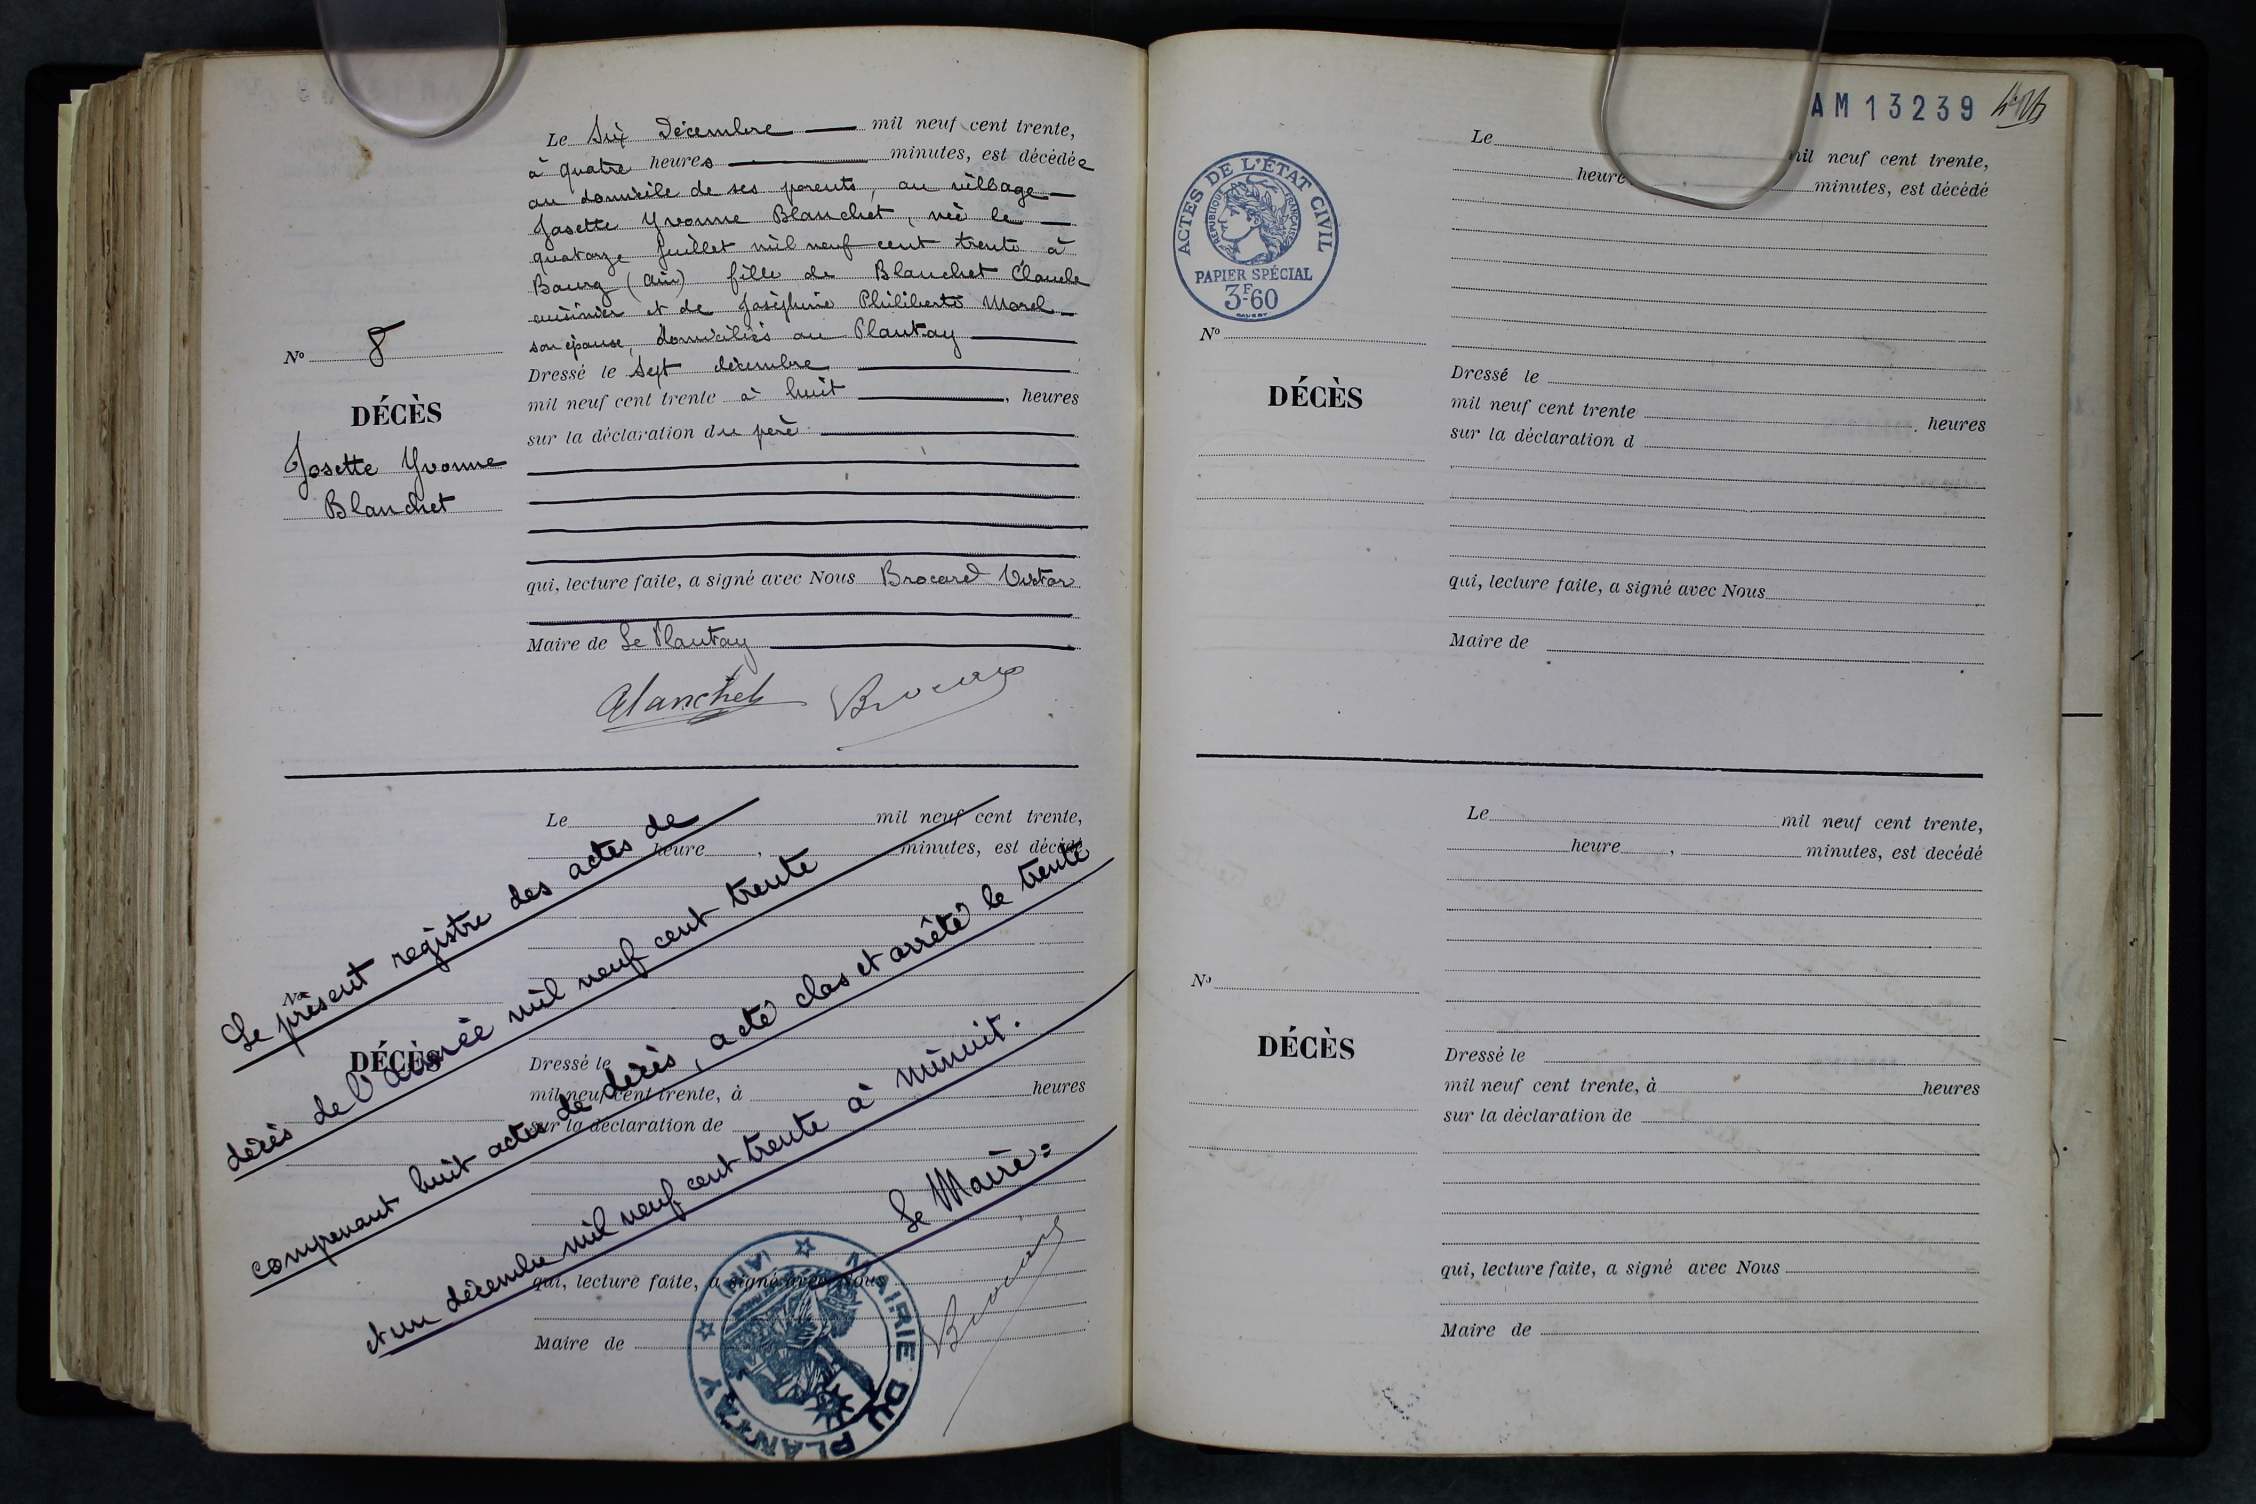 Le Six Décembre mil neuf cent trente,
à quatre heures minutes, est décédée
au domicile de ses parents, au village
Josette Yvonne Blanchet, née le
quatorze Juillet mil neuf cent trente à
Bourg (Ain) fille de Blanchet Claude
cuisinier et de Joséphine Philiberte Morel
son épouse, domiciliés au Plantay
Dressé le Sept décembre
mil neuf cent trente à huit, heures
sur la déclaration du père
qui, lecture faite, a signé avec Nous Brocard Victor
Maire de Le Plantay
Blanchet Brocard
No 8
DÉCÈS
Josette Yvonne
Blanchet
Le mil neuf cent trente,
heure, minutes, est décédé
No
DÉCÈS
Dressé le
mil neuf cent trente, à heures
sur la déclaration de
qui, lecture faite, a signé avec Nous
Maire de
Le présent registre des actes de
décès de l'année mil neuf cent trente
comprenant huit actes de décès, a été clos et arrêté le trente
et un décembre mil neuf cent trente à minuit.
Le Maire:
Brocard
MAIRIE DU PLANTAY
(AIN)
AM 13239
ACTES DE L'ÉTAT CIVIL
RÉPUBLIQUE FRANÇAISE
PAPIER SPÉCIAL
3F-60
Le mil neuf cent trente,
heure minutes, est décédé
No
DÉCÈS
Dressé le
mil neuf cent trente heures
sur la déclaration d
qui, lecture faite, a signé avec Nous
Maire de
Le mil neuf cent trente,
heure, minutes, est decédé
No
DÉCÈS
Dressé le
mil neuf cent trente, à heures
sur la déclaration de
qui, lecture faite, a signé avec Nous
Maire de